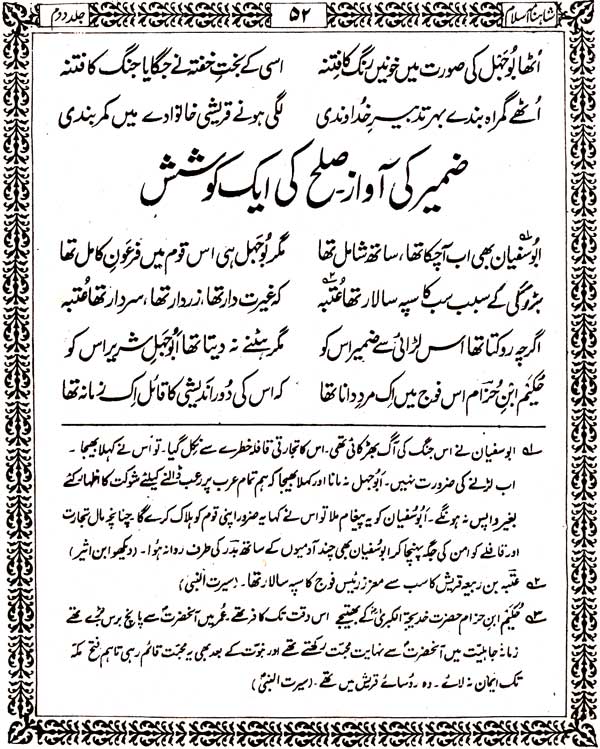 شاہنامۂ اسلام ۵۲ جلد دوم
اُٹھا بُوجہل کی صورت میں خونیں رنگ کا فتنہ اسی کے بختِ خفتہ نے جگایا جنگ کا فتنہ
اُٹھے گمراہ بندے بہرِ تدبیرِ خداوندی لگی ہونے قریشی خانوادے میں کمر بندی
ضمیر کی آواز۔ صلح کی ایک کوشش
ابُوسفیان ؂۱ بھی اب آچکا تھا، ساتھ شامل تھا مگر بُوجہل ہی اس قوم میں فرعونِ کامل تھا
بزرگی کے سبب سب کا سپہ سالار تھا عُتبہ ؂۲ کہ غیرت دار تھا، زردار تھا، سردار تھا عُتبہ
اگرچہ روکتا تھا اس لڑائی سے ضمیر اس کو مگر ہٹنے نہ دیتا تھا ابُوجہلِ شریر اس کو
حُکیم ابنِ حزام اس فوج میں اِک مردِ دانا تھا کہ اس کی دُور اندیشی کا قائل اِک زمانہ تھا
؂۱ ابوسفیان نے اس جنگ کی آگ بھڑکائی تھی۔ اس کا تجارتی قافلہ خطرے سے نکل گیا۔ تو اُس نے کہلا بھیجا۔
اب لڑنے کی ضرورت نہیں۔ ابُوجہل نہ مانا اور کہلا بھیجا کہ ہم تمام عرب پر رعب ڈالنے کیلئے شوکت کا اظہار کئے
بغیر واپس نہ ہونگے۔ ابُوسفیان کو یہ پیغام ملا تو اس نے کہا یہ ضرور اپنی قوم کو ہلاک کرے گا چنانچہ مالِ تجارت
اور قافلے کو امن کی جگہ پہنچا کر ابوسفیان بھی چند آدمیوں کے ساتھ بدر کی طرف روانہ ہوا۔ (دیکھو ابن اثیر)
؂۲ عُتبہ بن ربیعہ قریش کا سب سے معزز رئیس فوج کا سپہ سالار تھا۔ (سیرت النبی)
؂۳ حُکیم ابن حزام حضرت خدیجۃ الکبریٰؓ کے بھتیجے اس وقت تک کافر تھے۔ عُمر میں آنحضرتؐ سے پانچ برس بڑے تھے
زمانۂ جاہلیت میں آنحضرتؐ سے نہایت محبت رکھتے تھے اور نبوت کے بعد بھی یہ محبت قائم رہی تاہم فتح مکہ
تک ایمان نہ لائے۔ وہ رؤسائے قریش میں تھے۔ (سیرت النبیؐ)